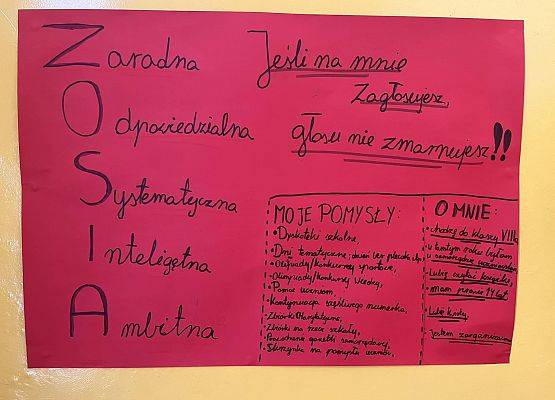 Zaradna
Odpowiedzialna
Systematyczna
Inteligętna
Ambitna
Jeśli na mnie
Zagłosujesz,
głosu nie zmarnujesz!!
MOJE POMYSŁY:
•Dyskoteki szkolne,
•Dni tematyczne; dzień bez plecaka itp.,
•Olimpiady/Konkursy sportowe,
-Olimpiady/Konkursy wiedzy,
•Pomoc uczniom
-Kontynuacja szęśliwego numerka,
-Zbiórki Charytatywne,
-Zbiórki na rzecz szkoły,
gazetki samorządowej,
•Skrzynka na pomysły uczniów,
O MNIE:
•chodzę do klasy VIII
w tamtym roku byłam
w samorządzie
Lubię czytać książki,
mam prawie 14 lat
Lubię
Jestem